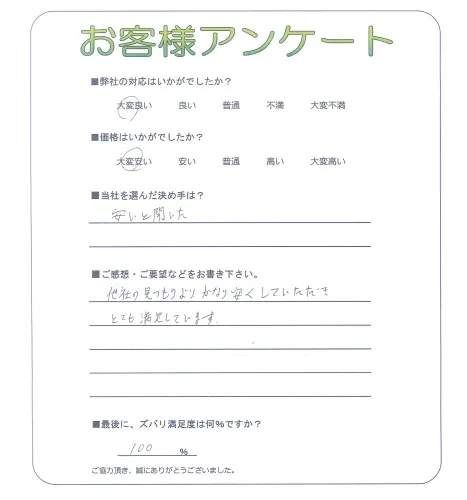 お客様アンケート
■弊社の対応はいかがでしたか？
大変良い　良い　普通　不満　大変不満
■価格はいかがでしたか？
大変安い　安い　普通　高い　大変高い
■当社を選んだ決め手は？
安いと聞いた
■ご感想・ご要望などをお書き下さい。
他社の見つもりよりかなり安くしていただき
とても満足しています。
■最後に、ズバリ満足度は何％ですか？
100 ％
ご協力頂き、誠にありがとうございました。